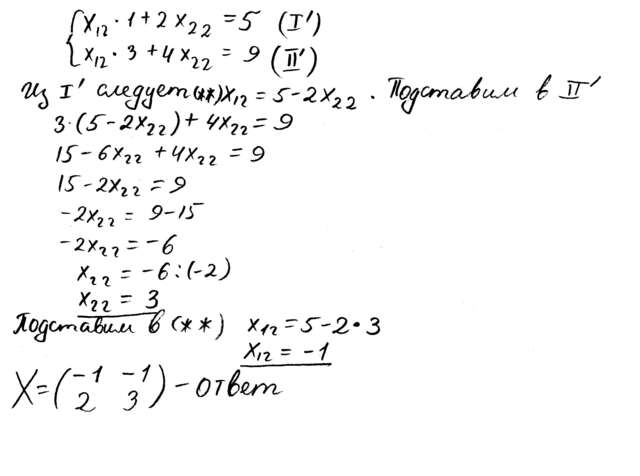 { x₁₂ · 1 + 2x₂₂ = 5 (I')
{ x₁₂ · 3 + 4x₂₂ = 9 (II')
Из I' следует (**) x₁₂ = 5 - 2x₂₂. Подставим в II'
3·(5 - 2x₂₂) + 4x₂₂ = 9
15 - 6x₂₂ + 4x₂₂ = 9
15 - 2x₂₂ = 9
-2x₂₂ = 9 - 15
-2x₂₂ = -6
x₂₂ = -6 : (-2)
x₂₂ = 3
Подставим в (**) x₁₂ = 5 - 2·3
x₁₂ = -1
X = (-1 -1) - ответ
(2 3)